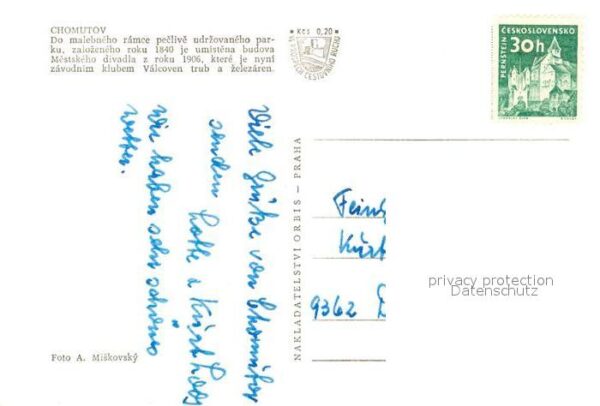 CHOMUTOV
Do malebného rámce pečlivě udržovaného par-
ku, založeného roku 1840 je umístěna budova
Městského divadla z roku 1906, které je nyní
závodním klubem Válcoven trub a železáren.
Kčs 0,20
30h
ČESKOSLOVENSKO
PERNŠTEJN
Viele Grüße von Chomutov
senden Lotte u. Kurt
Wir haben sehr schönes
Wetter.
NAKLADATELSTVÍ ORBIS — PRAHA
Kurt
9362
privacy protection
Datenschutz
Foto A. Miškovský